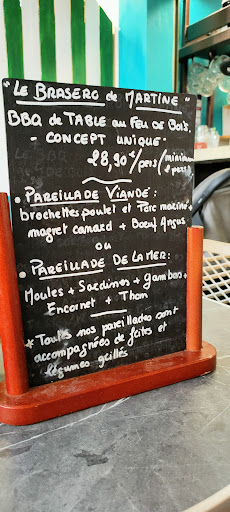 "LE BRASERO de MARTINE"
BBQ de TABLE au FEU DE BOIS.
- CONCEPT UNIQUE -
28,90€/pers/minimum
2 pers
• PAREILLADE VIANDE :
brochettes poulet et Porc mariné +
magret canard + Boeuf Angus
ou
• PAREILLADE DE LA MER :
Moules + Sardines + gambas +
Encornet + Thon
* Toutes nos pareillades sont
accompagnées de frites et
légumes grillés